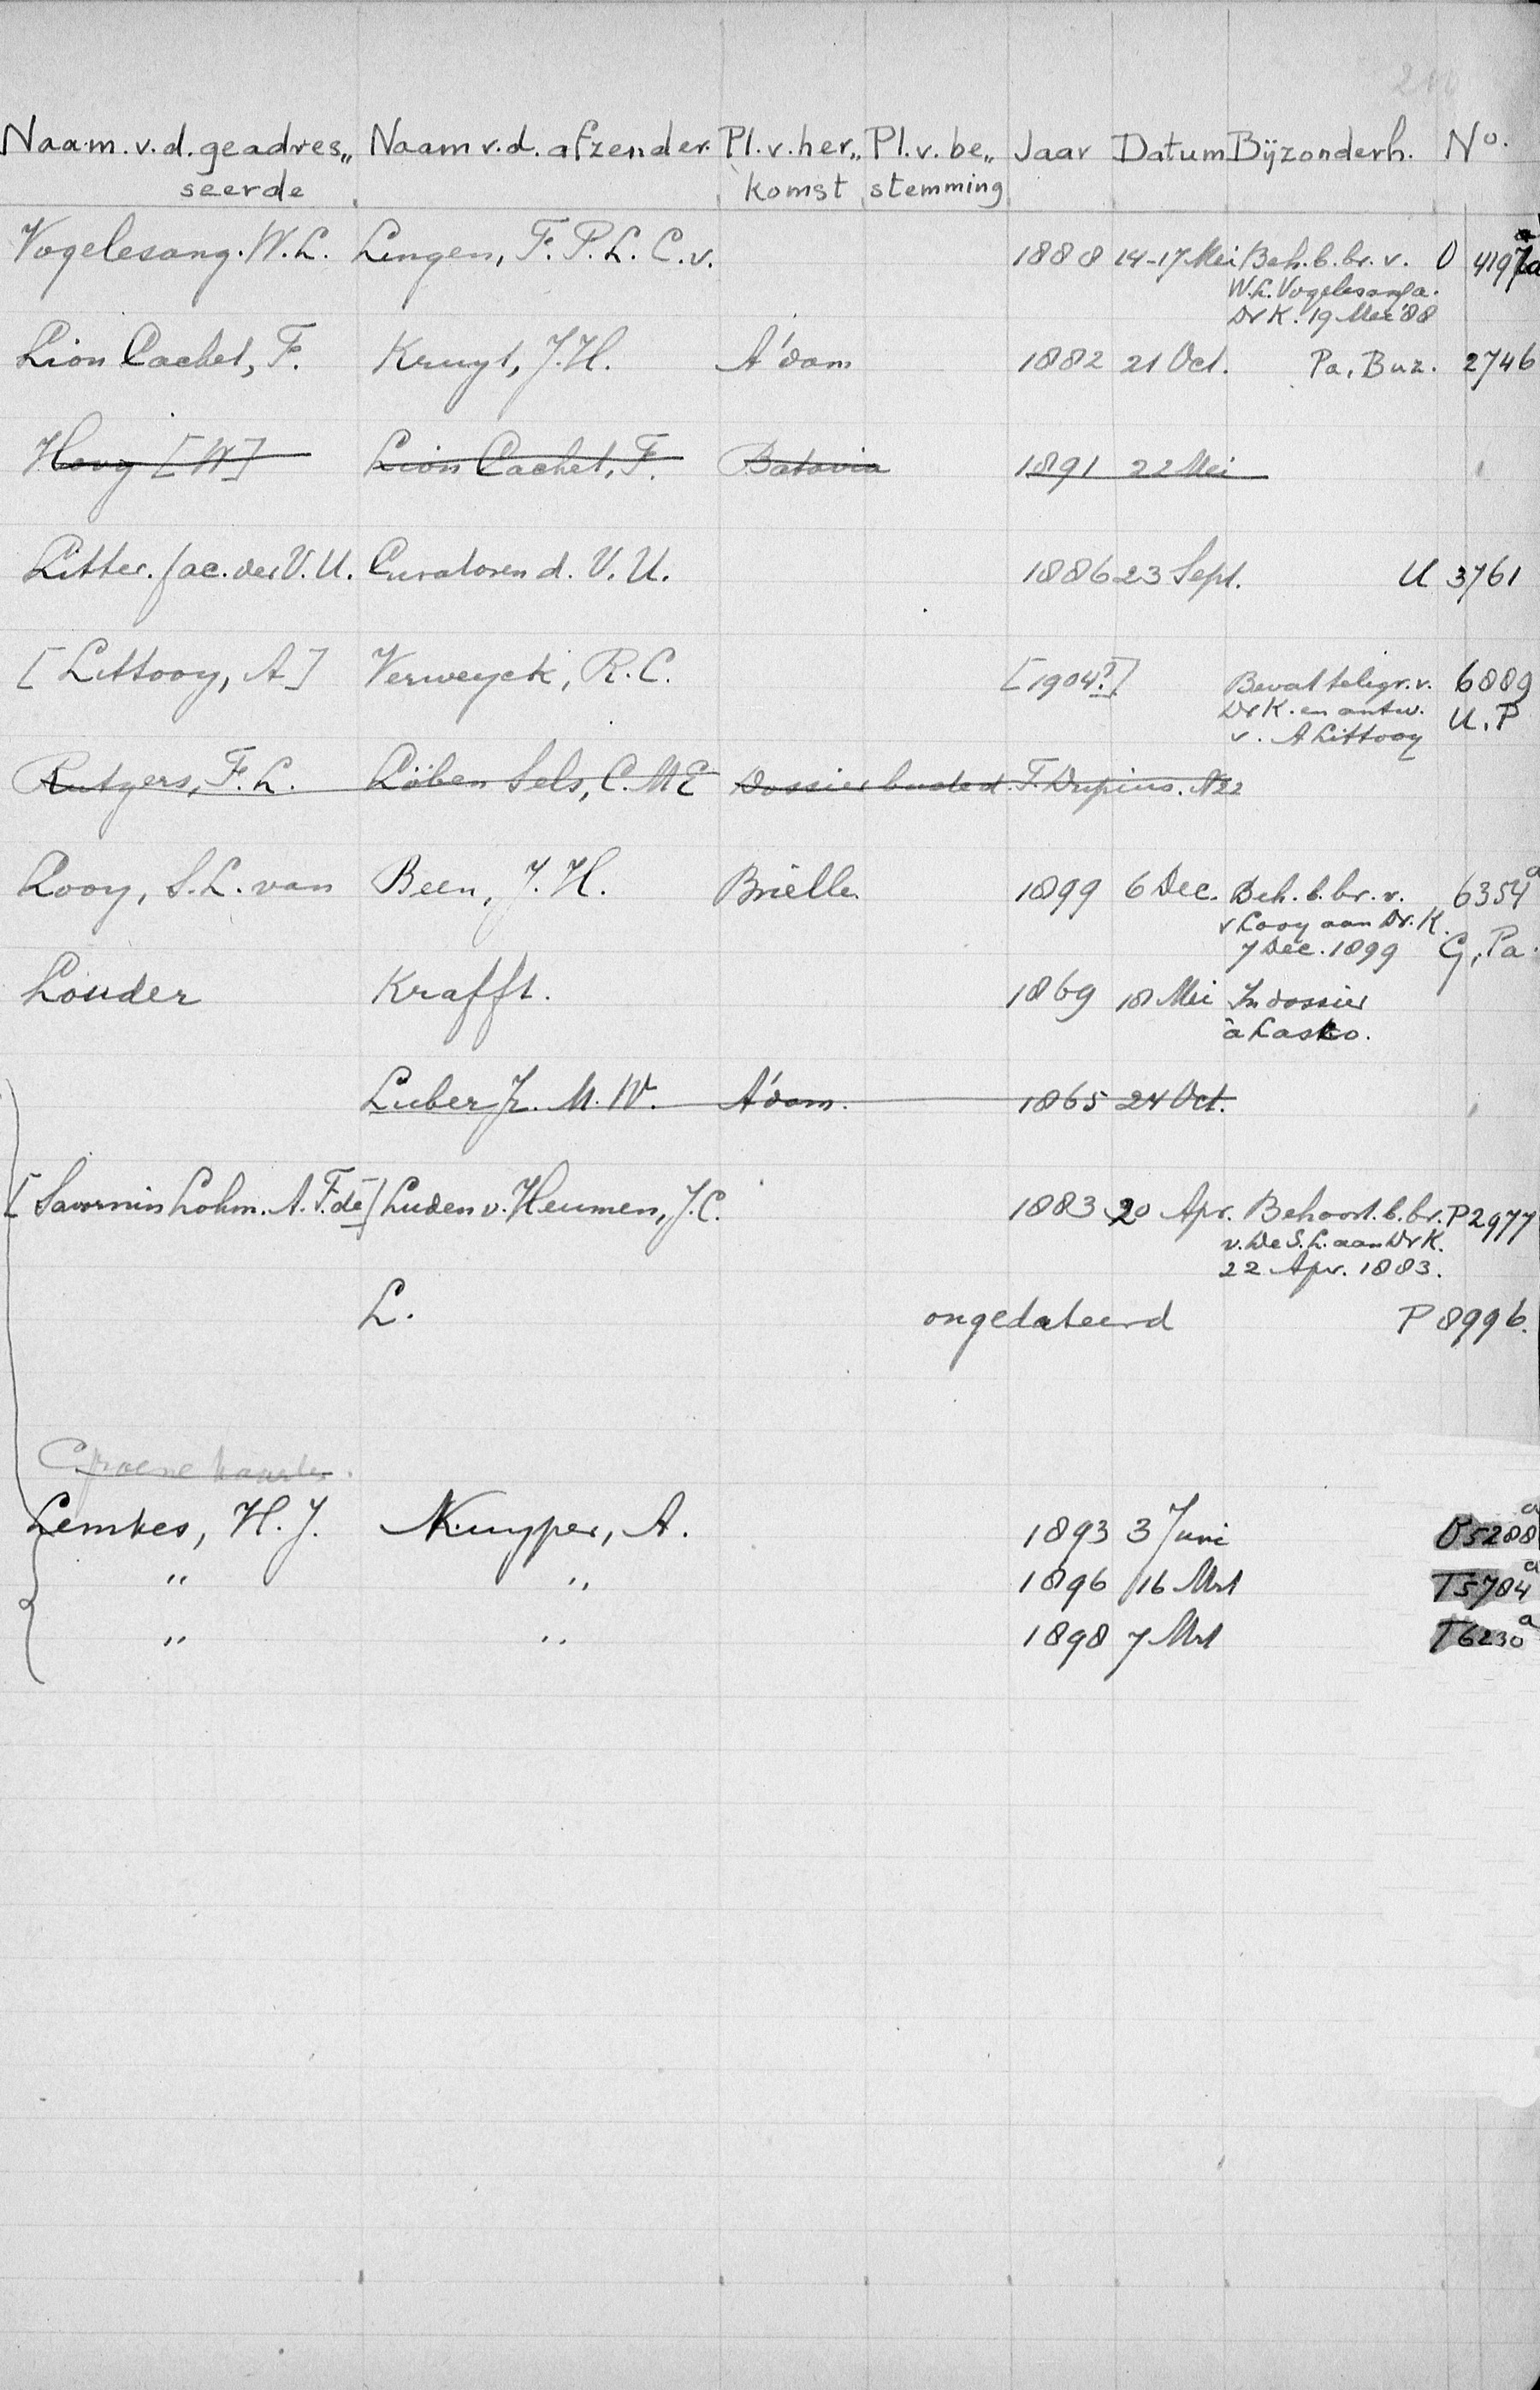 Naam.v.d.geadres„ Naam v.d. afzender. Pl.v.her„ Pl.v.be„ Jaar Datum Bijzonderh. No.
seerde komst stemming
Vogelesang. W.L. Lingen, F.P.L.C.v. 1888 14-17 Mei Beh.b.br.v. O 4197a
W.L. Vogelesang a.
Dr K. 19 Mei '88
Lion Cachet, F. Kruyt, J.H. A'dam 1882 21 Oct. Pa. Buz. 2746
Hovy [W] Lion Cachet, F. Batavia 1891 22 Mei
Litter. fac. der V.U. Curatoren d. V.U. 1886 23 Sept. U 3761
[Littooy, A] Verweyck, R.C. [1904?] Bevat telegr. v. 6889
Dr K. en antw. U.P
v. A Littooy
Rutgers, F.L. Löben Sels, C.M.E Dossier F. N22
Looy, S.L. van Been, J.H. Brielle 1899 6 Dec. Beh.b.br.v. 6354a
v Looy aan Dr.K.
7 Dec. 1899 G, Pa.
Louder Krafft. 1869 18 Mei In dossier
à Lasko.
Luber Jr. M.W. A'dam. 1865 24 Oct.
[Savornin Lohm. A.F. de] Luden v. Heumen, J.C. 1883 20 Apr. Behoort.b.br. P 2977
v. De S.L. aan Dr K.
22 Apr. 1883.
L. ongedateerd P 8996.
Groene kaarten.
Lemkes, H.J. Kuyper, A. 1893 3 Juni O 5288a
" " 1896 16 Mrt T 5784a
" " 1898 7 Mrt T 6230a